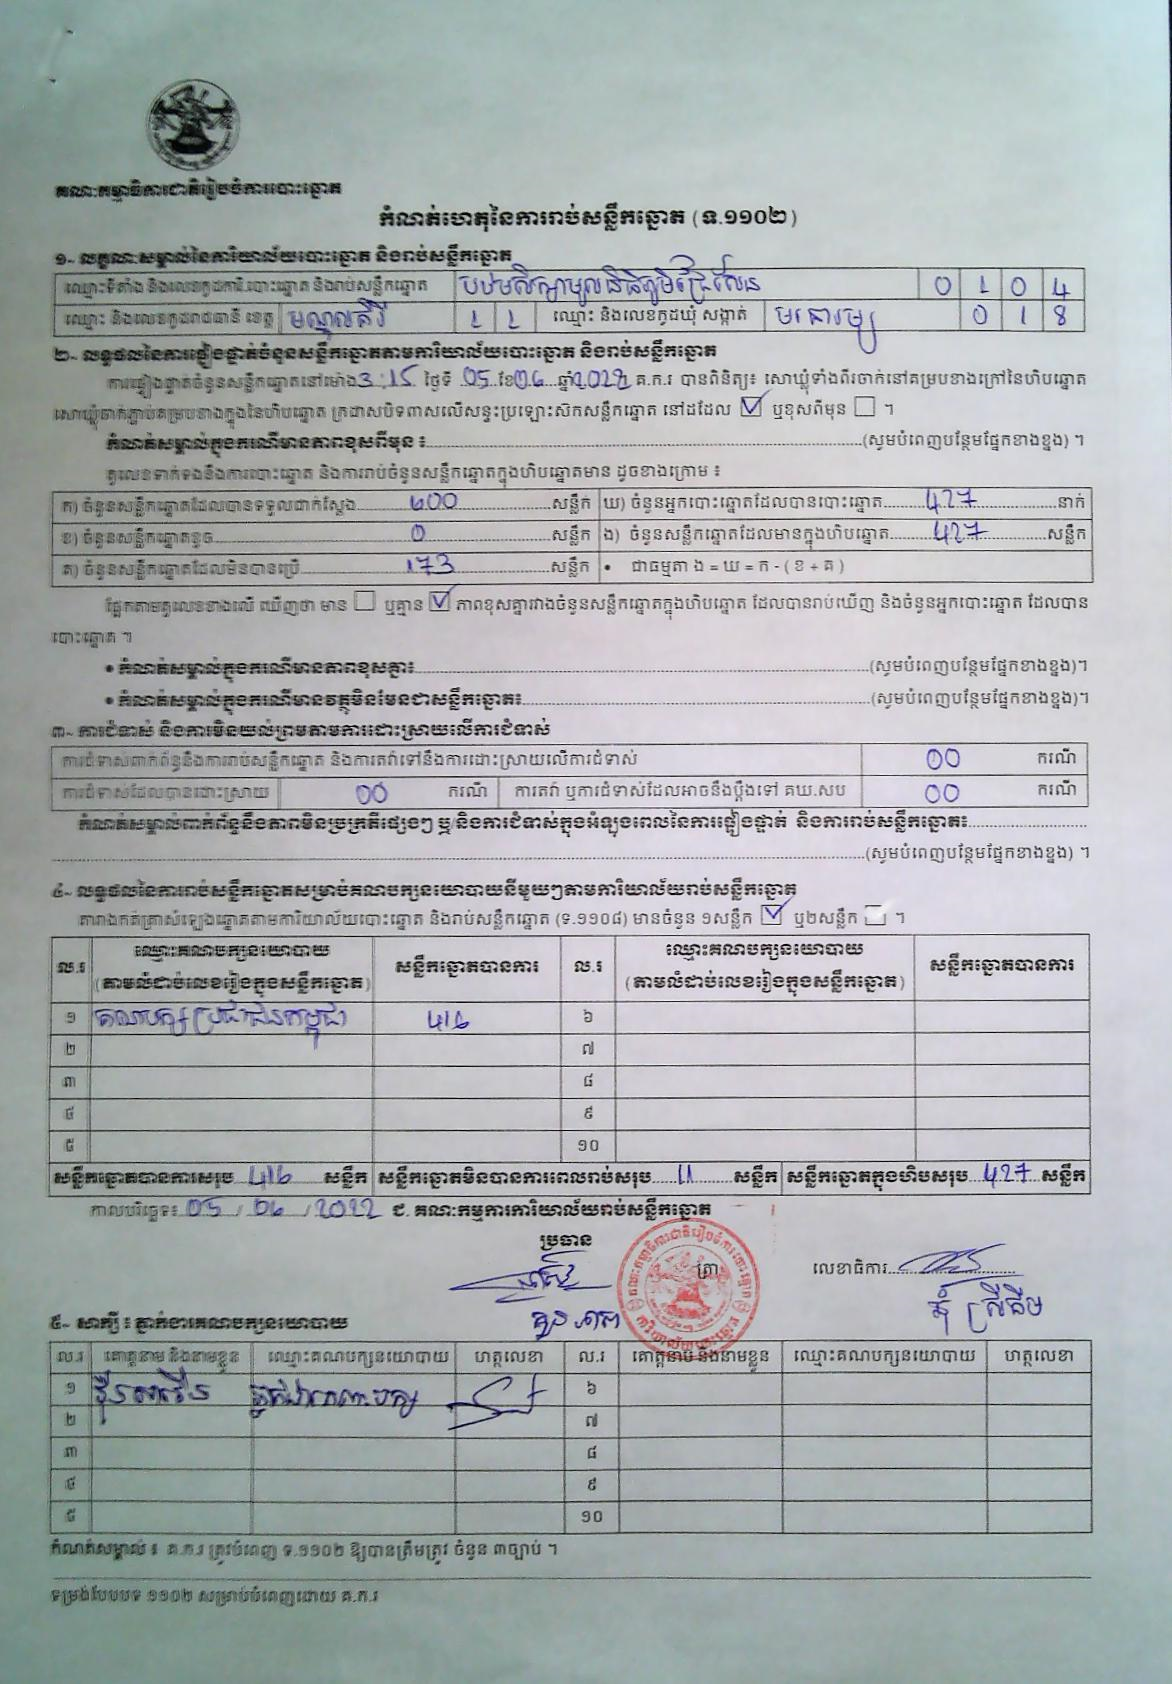 គណៈកម្មាធិការជាតិរៀបចំការបោះឆ្នោត
កំណត់ហេតុនៃការរាប់សន្លឹកឆ្នោត (ទ.១១០២)
១- លក្ខណៈសម្គាល់នៃការិយាល័យបោះឆ្នោត និងរាប់សន្លឹកឆ្នោត
ឈ្មោះទីតាំង និងលេខកូដការិ.បោះឆ្នោត និងរាប់សន្លឹកឆ្នោត 0 1 0 4
ឈ្មោះ និងលេខកូដរាជធានី ខេត្ត មណ្ឌលគីរី 1 1 ឈ្មោះ និងលេខកូដឃុំ សង្កាត់ 0 1 8
២- លទ្ធផលនៃការផ្ទៀងផ្ទាត់ចំនួនសន្លឹកឆ្នោតតាមការិយាល័យបោះឆ្នោត និងរាប់សន្លឹកឆ្នោត
ការផ្ទៀងផ្ទាត់ចំនួនសន្លឹកឆ្នោតនៅម៉ោង 3:15 ថ្ងៃទី 05 ខែ 06 ឆ្នាំ 2022 គ.ក.រ បានពិនិត្យ៖ សោឃ្លុំទាំងពីរចាក់នៅគម្របខាងក្រៅនៃហិបឆ្នោត
សោឃ្លុំចាក់ភ្ជាប់គម្របខាងក្នុងនៃហិបឆ្នោត ក្រដាសបិទពាសលើសន្ទះប្រឡោះស៊កសន្លឹកឆ្នោត នៅដដែល ☑ ឬខុសពីមុន ☐ ។
កំណត់សម្គាល់ក្នុងករណីមានភាពខុសពីមុន ៖ (សូមបំពេញបន្ថែមផ្នែកខាងខ្នង) ។
តួលេខទាក់ទងនឹងការបោះឆ្នោត និងការរាប់ចំនួនសន្លឹកឆ្នោតក្នុងហិបឆ្នោតមាន ដូចខាងក្រោម ៖
ក) ចំនួនសន្លឹកឆ្នោតដែលបានទទួលជាក់ស្តែង 600 សន្លឹក ឃ) ចំនួនអ្នកបោះឆ្នោតដែលបានបោះឆ្នោត 427 នាក់
ខ) ចំនួនសន្លឹកឆ្នោតខូច 0 សន្លឹក ង) ចំនួនសន្លឹកឆ្នោតដែលមានក្នុងហិបឆ្នោត 427 សន្លឹក
គ) ចំនួនសន្លឹកឆ្នោតដែលមិនបានប្រើ 173 សន្លឹក • ជាធម្មតា ង = ឃ = ក - ( ខ + គ )
ផ្អែកតាមតួលេខខាងលើ ឃើញថា មាន ☐ ឬគ្មាន ☑ ភាពខុសគ្នារវាងចំនួនសន្លឹកឆ្នោតក្នុងហិបឆ្នោត ដែលបានរាប់ឃើញ និងចំនួនអ្នកបោះឆ្នោត ដែលបាន
បោះឆ្នោត ។
• កំណត់សម្គាល់ក្នុងករណីមានភាពខុសគ្នា៖ (សូមបំពេញបន្ថែមផ្នែកខាងខ្នង)។
• កំណត់សម្គាល់ក្នុងករណីមានវត្ថុមិនមែនជាសន្លឹកឆ្នោត៖ (សូមបំពេញបន្ថែមផ្នែកខាងខ្នង)។
៣- ការជំទាស់ និងការមិនយល់ព្រមតាមការដោះស្រាយលើការជំទាស់
ការជំទាស់ពាក់ព័ន្ធនឹងការរាប់សន្លឹកឆ្នោត និងការតវ៉ាទៅនឹងការដោះស្រាយលើការជំទាស់ 00 ករណី
ការជំទាស់ដែលបានដោះស្រាយ 00 ករណី ការតវ៉ា ឬការជំទាស់ដែលអាចនឹងប្តឹងទៅ គឃ.សប 00 ករណី
កំណត់សម្គាល់ពាក់ព័ន្ធនឹងភាពមិនប្រក្រតីផ្សេងៗ ឬ/និងការជំទាស់ក្នុងអំឡុងពេលនៃការផ្ទៀងផ្ទាត់ និងការរាប់សន្លឹកឆ្នោត៖
(សូមបំពេញបន្ថែមផ្នែកខាងខ្នង) ។
៤- លទ្ធផលនៃការរាប់សន្លឹកឆ្នោតសម្រាប់គណបក្សនយោបាយនីមួយៗតាមការិយាល័យរាប់សន្លឹកឆ្នោត
តារាងកត់ត្រាសំឡេងឆ្នោតតាមការិយាល័យបោះឆ្នោត និងរាប់សន្លឹកឆ្នោត (ទ.១១០៨) មានចំនួន ១សន្លឹក ☑ ឬ២សន្លឹក ☐ ។
ល.រ ឈ្មោះគណបក្សនយោបាយ (តាមលំដាប់លេខរៀងក្នុងសន្លឹកឆ្នោត) សន្លឹកឆ្នោតបានការ ល.រ ឈ្មោះគណបក្សនយោបាយ (តាមលំដាប់លេខរៀងក្នុងសន្លឹកឆ្នោត) សន្លឹកឆ្នោតបានការ
១ គណបក្សប្រជាជនកម្ពុជា 416 ៦
២ ៧
៣ ៨
៤ ៩
៥ ១០
សន្លឹកឆ្នោតបានការសរុប 416 សន្លឹក សន្លឹកឆ្នោតមិនបានការពេលរាប់សរុប 11 សន្លឹក សន្លឹកឆ្នោតក្នុងហិបសរុប 427 សន្លឹក
កាលបរិច្ឆេទ៖ 05 / 06 / 2022 ជ. គណៈកម្មការការិយាល័យរាប់សន្លឹកឆ្នោត
ប្រធាន
ត្រា
លេខាធិការ
៥- សាក្សី ៖ ភ្នាក់ងារគណបក្សនយោបាយ
ល.រ គោត្តនាម និងនាមខ្លួន ឈ្មោះគណបក្សនយោបាយ ហត្ថលេខា ល.រ គោត្តនាម និងនាមខ្លួន ឈ្មោះគណបក្សនយោបាយ ហត្ថលេខា
១ ភ្នាក់ងារគណបក្ស ៦
២ ៧
៣ ៨
៤ ៩
៥ ១០
កំណត់សម្គាល់ ៖ គ.ក.រ ត្រូវបំពេញ ទ.១១០២ ឱ្យបានត្រឹមត្រូវ ចំនួន ៣ច្បាប់ ។
ទម្រង់បែបបទ ១១០២ សម្រាប់បំពេញដោយ គ.ក.រ